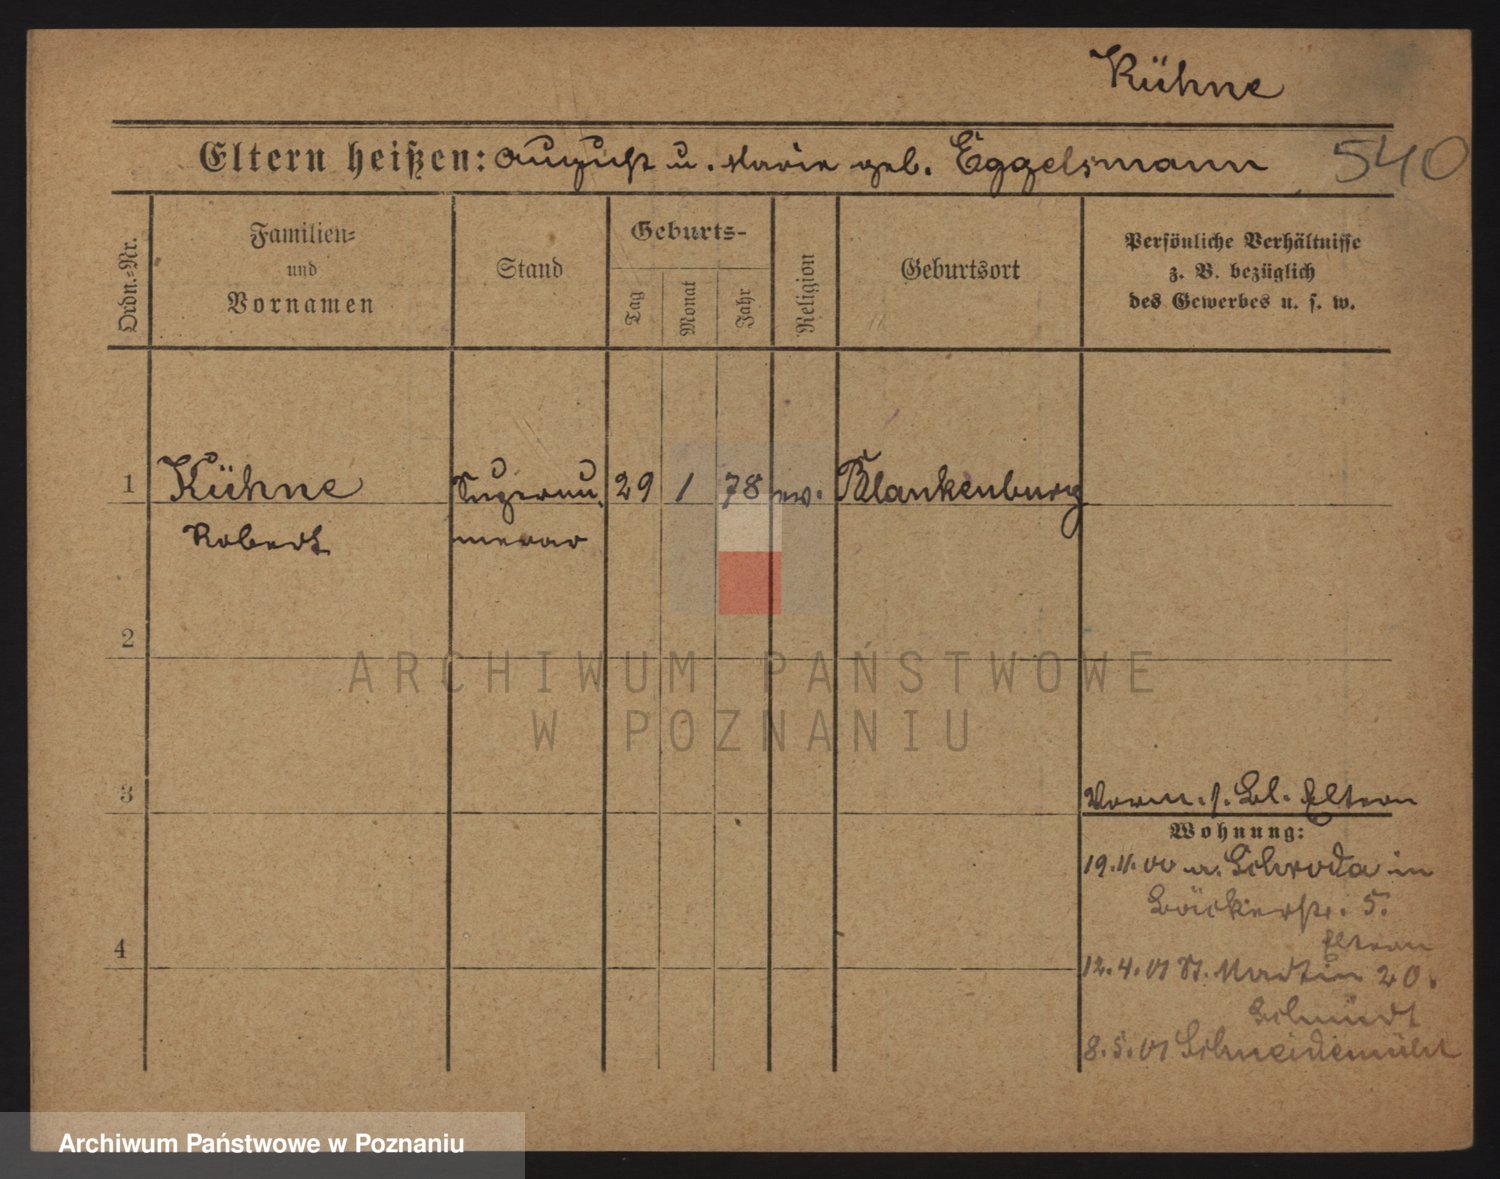 Kühne
Eltern heißen: August u. Marie geb. Eggelsmann 540
Ordn.-Nr.
Familien-
und
Vornamen
Stand
Geburts-
Tag
Monat
Jahr
Religion
Geburtsort
Persönliche Verhältnisse
z. B. bezüglich
des Gewerbes u. s. w.
1 Kühne Supernu 29 1 78 ev. Blankenburg
Robert merar
2
ARCHIWUM PAŃSTWOWE
W POZNANIU
3
Vorm. s. Bl. Eltern
Wohnung:
19.11.00 a. Schroda in
Bäckerstr. 5.
Eltern
4
12.4.01 St. Martin 20.
Schmidt
8.5.01 Schneidemühl
Archiwum Państwowe w Poznaniu